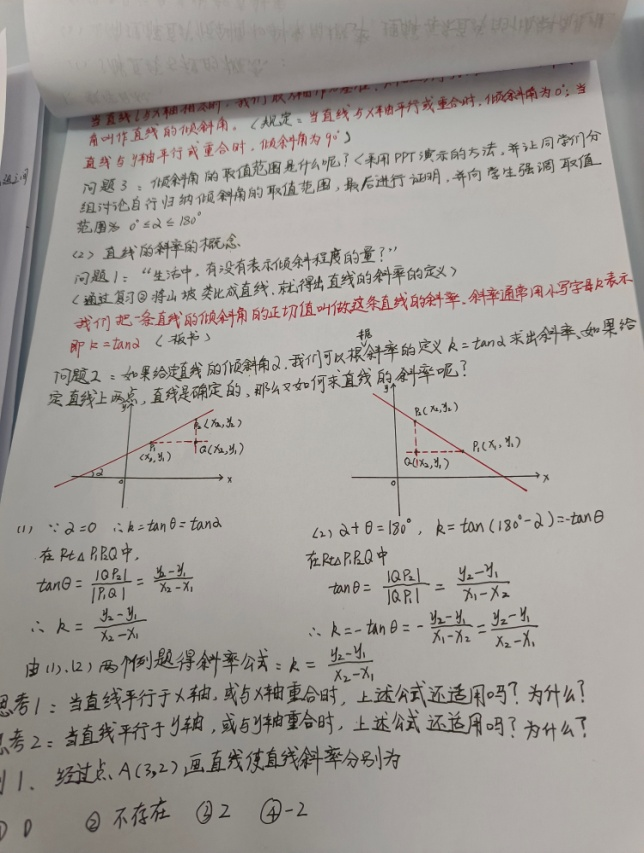 当直线l与x轴相交时，我们取x轴作为基准，
角叫作直线的倾斜角。（规定：当直线与x轴平行或重合时，倾斜角为0°；当
直线与y轴平行或重合时，倾斜角为90°）
问题3：倾斜角的取值范围是什么呢？（采用PPT演示的方法，并让同学们分
组讨论自行归纳倾斜角的取值范围，最后进行证明，并向学生强调取值
范围为 0°≤α≤180°
(2) 直线的斜率的概念
问题1：“生活中，有没有表示倾斜程度的量？”
（通过复习②将山坡类比成直线，就得出直线的斜率的定义）
我们把一条直线的倾斜角的正切值叫做这条直线的斜率。斜率通常用小写字母k表示
即 k=tanα （板书）
问题2：如果给定直线的倾斜角α，我们可以根据斜率的定义 k=tanα 求出斜率、如果给
定直线上两点，直线是确定的，那么又如何求直线的斜率呢？
y
P₂(x₂,y₂)
P₁
(x₁,y₁)
Q(x₂,y₁)
α
0
x
y
P₂(x₂,y₂)
P₁(x₁,y₁)
Q(x₂,y₁)
0
x
(1) ∵α=θ ∴k=tanθ=tanα
在Rt△P₁P₂Q中，
tanθ=|QP₂|/|P₁Q|=y₂-y₁/x₂-x₁
∴ k=y₂-y₁/x₂-x₁
(2) α+θ=180°，k=tan(180°-α)=-tanθ
在Rt△P₁P₂Q中
tanθ=|QP₂|/|QP₁|=y₂-y₁/x₁-x₂
∴ k=-tanθ=-y₂-y₁/x₁-x₂=y₂-y₁/x₂-x₁
由(1)、(2)两个例题得斜率公式：k=y₂-y₁/x₂-x₁
思考1：当直线平行于x轴，或与x轴重合时，上述公式还适用吗？为什么？
思考2：当直线平行于y轴，或与y轴重合时，上述公式还适用吗？为什么？
例1、经过点A(3,2)画直线使直线斜率分别为
① 0 ② 不存在 ③ 2 ④ -2